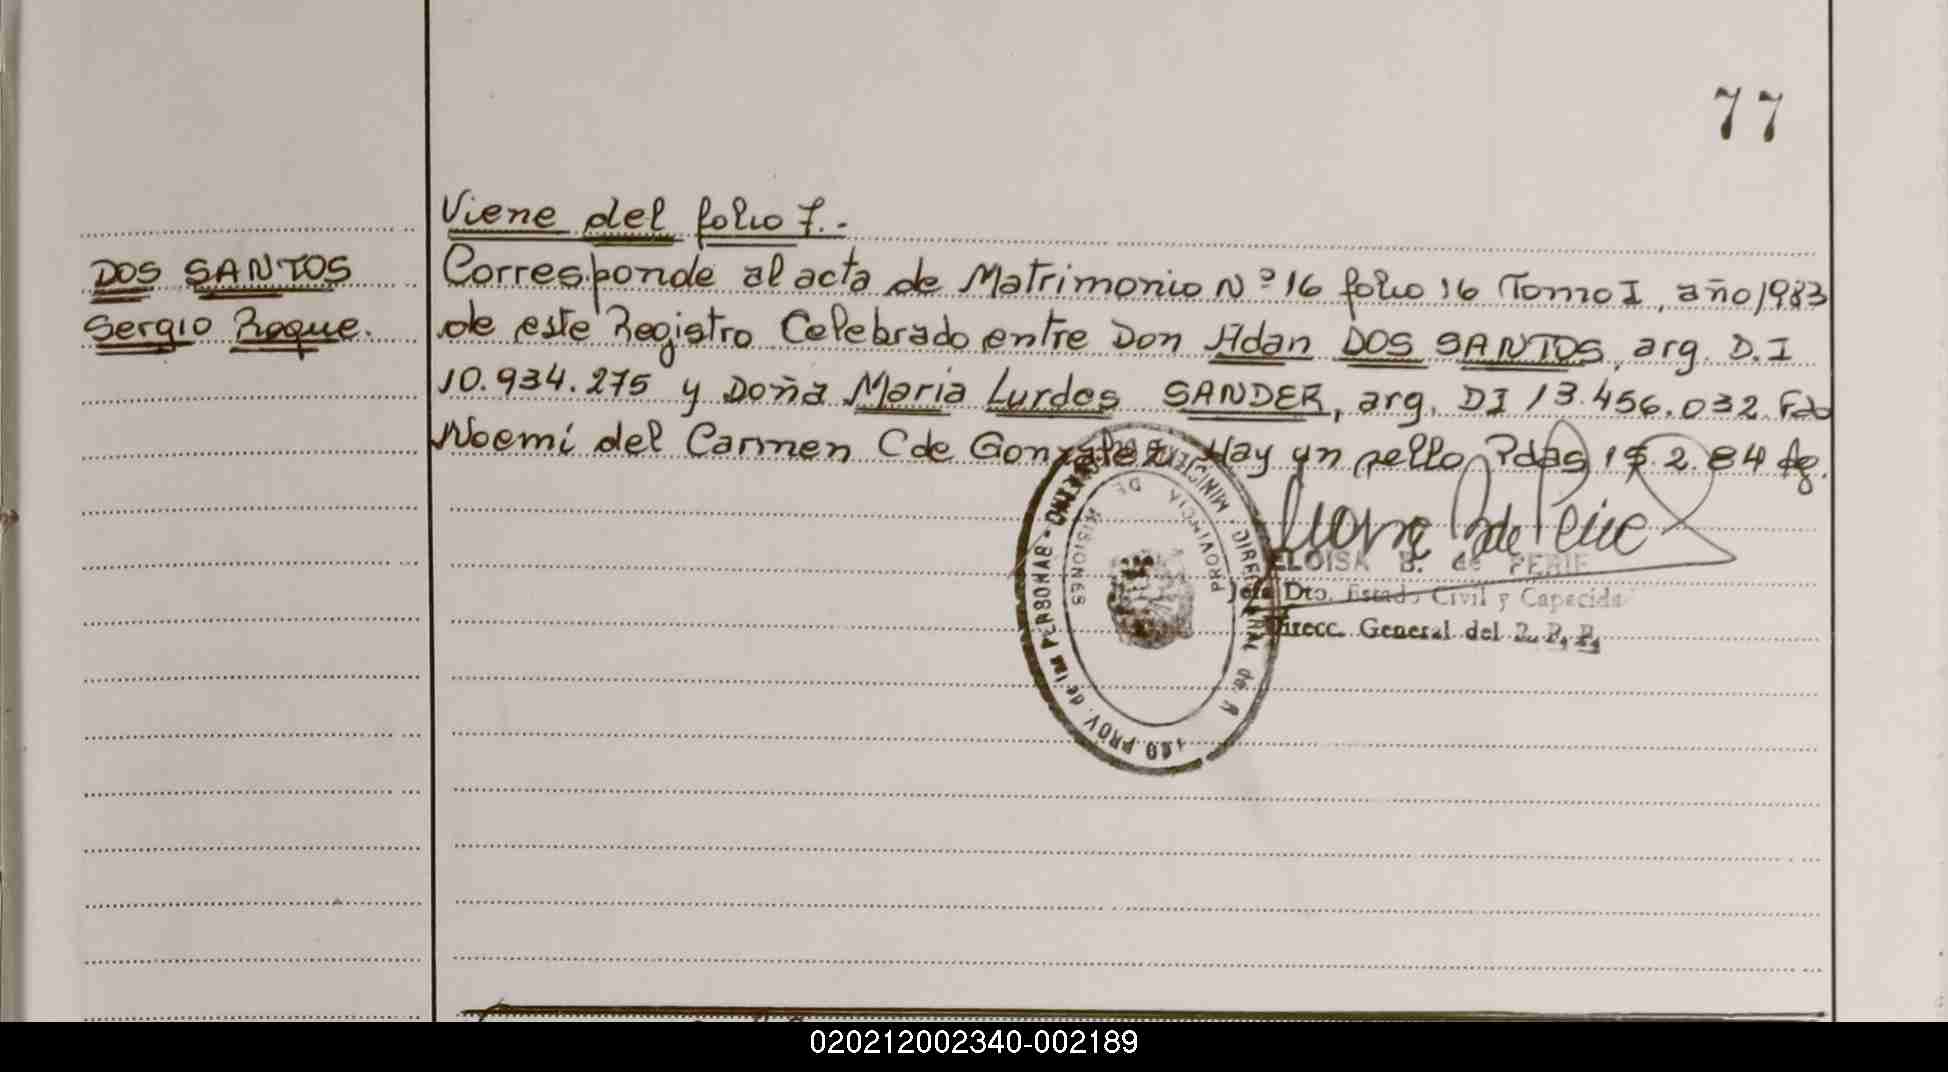 77
Viene del folio 7.-
DOS SANTOS
Sergio Roque.
Corresponde al acta de Matrimonio Nº 16 folio 16 Tomo I, año 1983
de este Registro Celebrado entre Don Adan DOS SANTOS, arg. D.I
10.934.275 y Doña Maria Lurdes SANDER, arg. DI 13.456.032 Fdo
Noemi del Carmen C de Gonzalez. Hay un sello Pdas 15.2.84
ELOISA B. de PERIE
Jefa Dto. Estado Civil y Capacida
Direcc. General del R. P. P.
PROVINCIA DE MISIONES
020212002340-002189